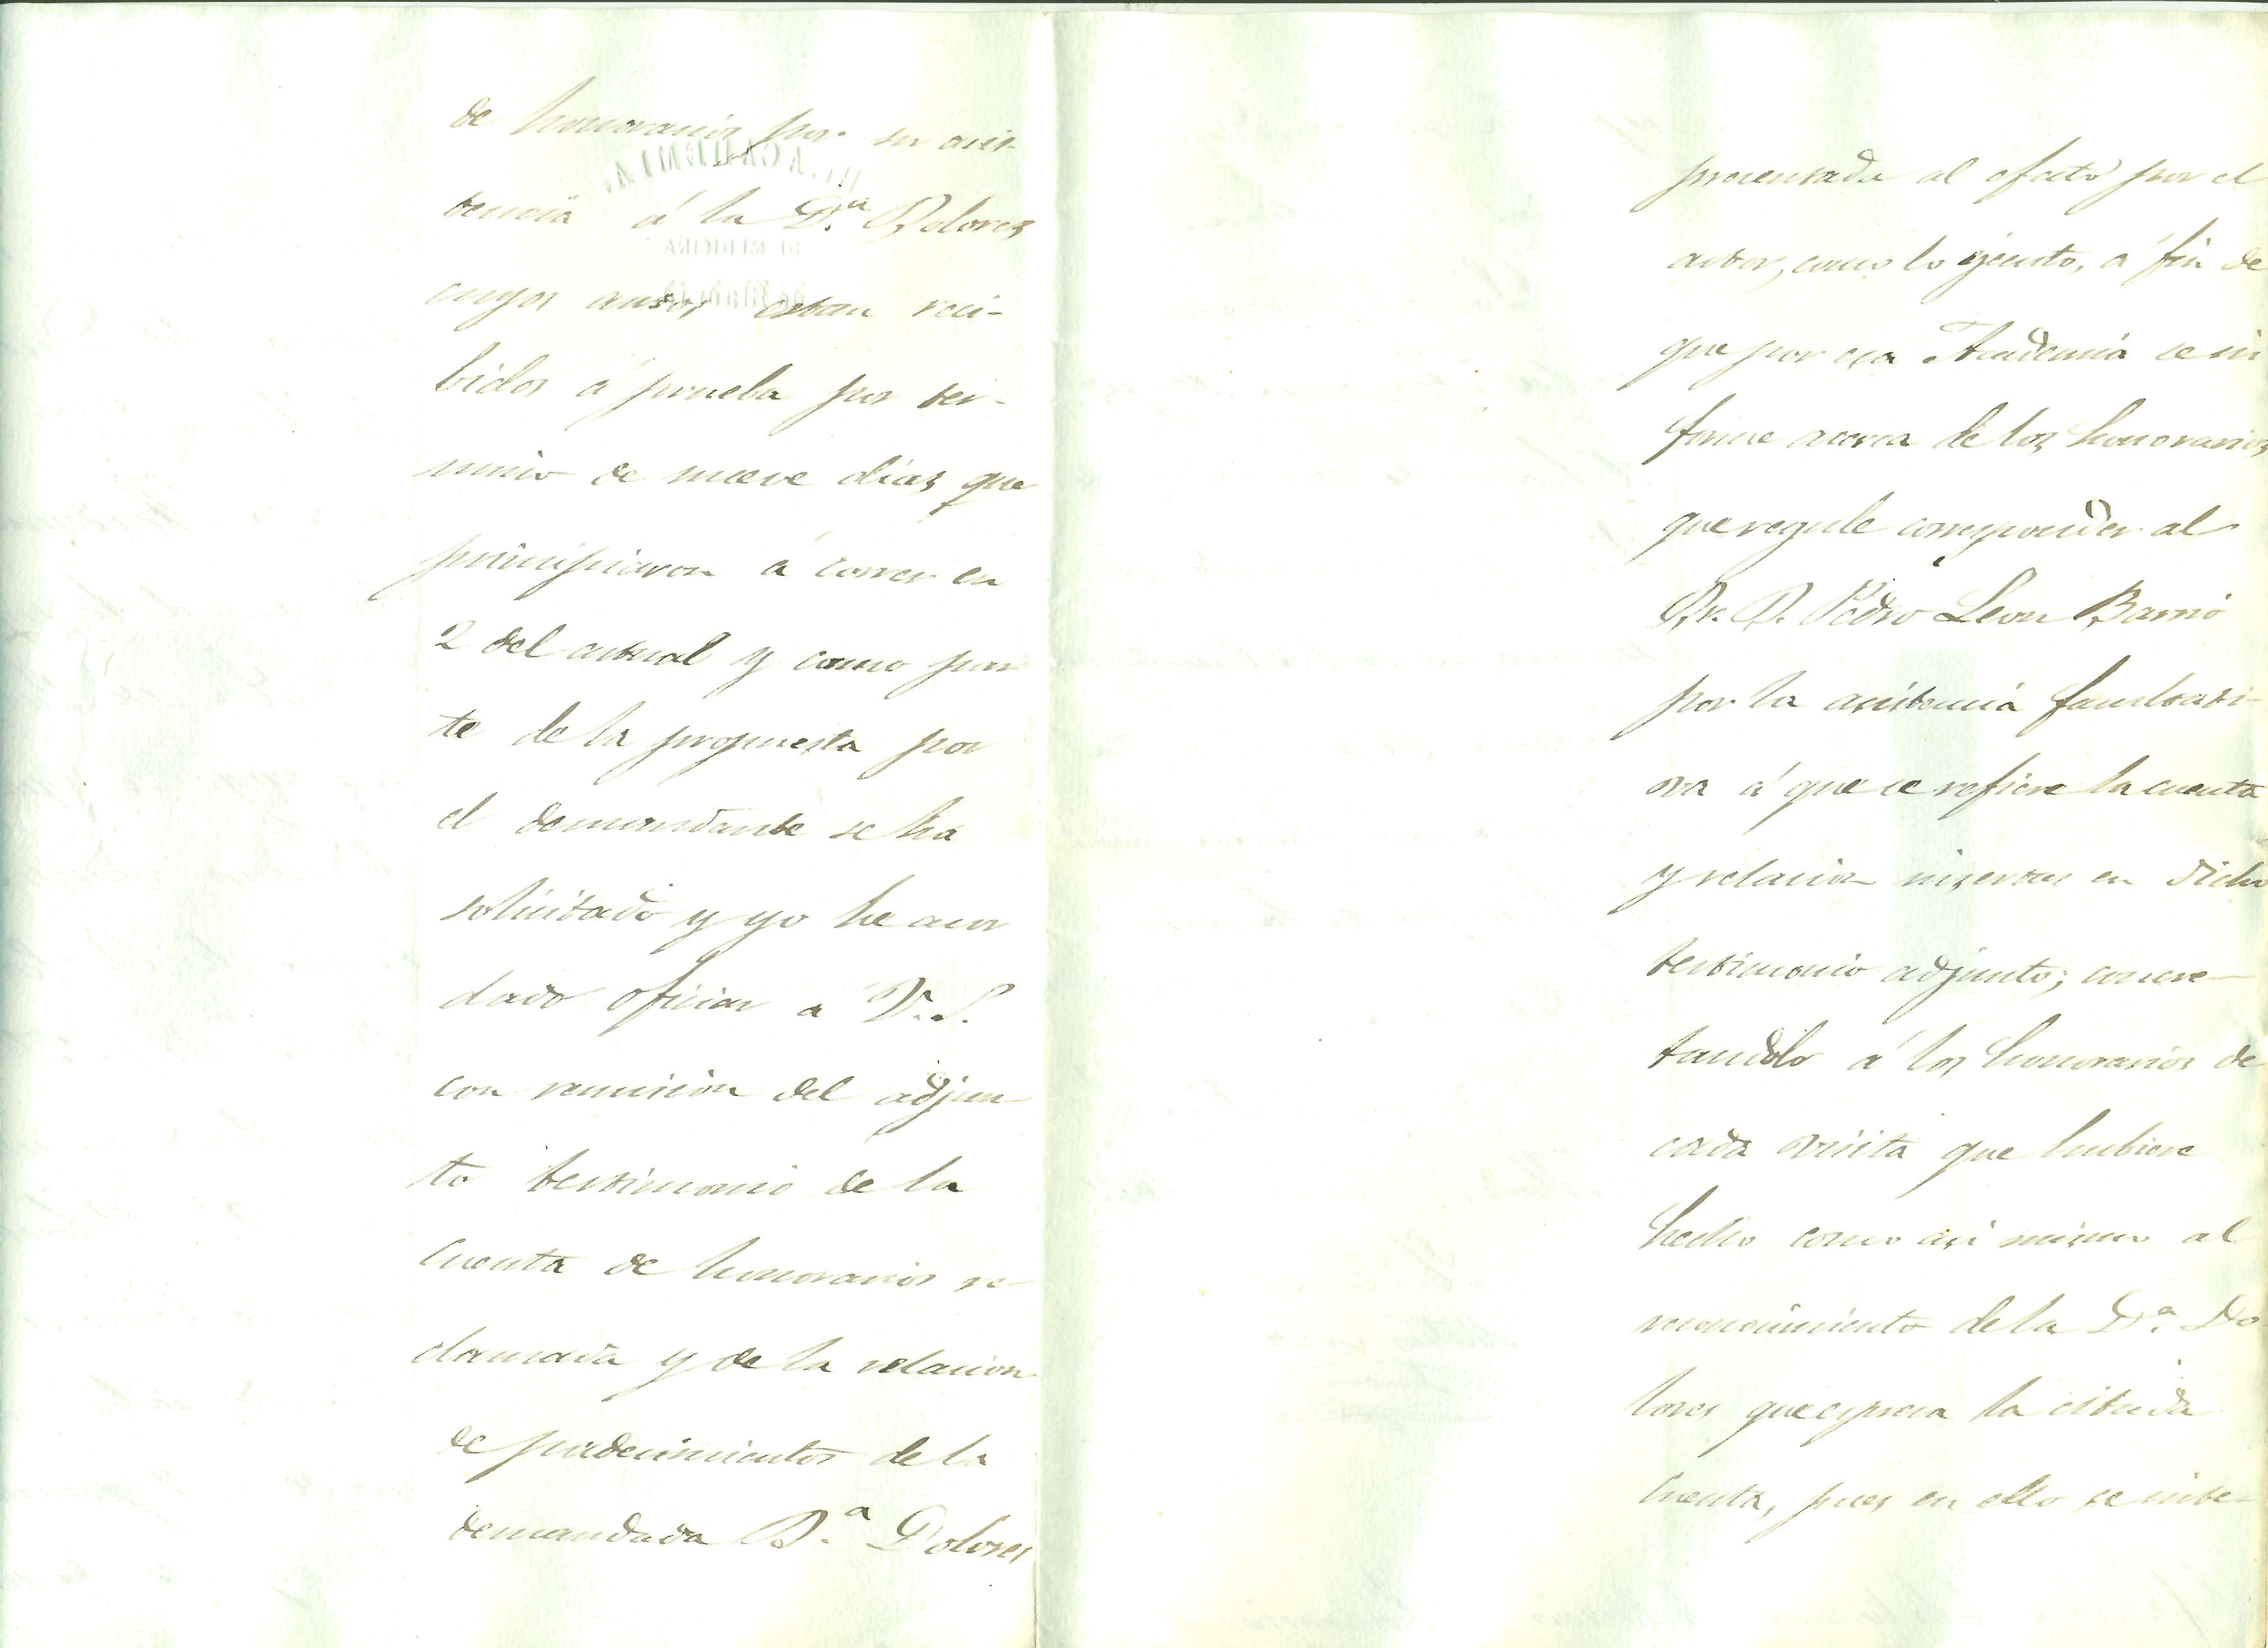 de honorarios por su asis-
tencia á la D.ª Dolores
cuyos autos estan reci-
bidos á prueba por tér-
mino de nueve dias que
principiaron á correr en
2 del actual y como par
te de la propuesta por
el demandante se ha
solicitado y yo he acor
dado oficiar á V.S.
con remision del adjun-
to testimonio de la
cuenta de honorarios re-
clamada y de la relacion
de padecimientos de la
demandada D.ª Dolores
presentada al efecto por el
actor, como lo ejecuto, á fin de
que por esa Academia se in
forme acerca de los honorarios
que regule corresponder al
Dr. D. Pedro Leon Barrio
por la asistencia facultati-
va á que se refiere la cuenta
y relacion insertas en dicho
testimonio adjunto; concre-
tandolo á los honorarios de
cada visita que hubiere
hecho como asi mismo al
reconocimiento de la D.ª Do
lores que espresa la citada
cuenta, pues en ello se inte-
ACADEMIA
DE MEDICINA